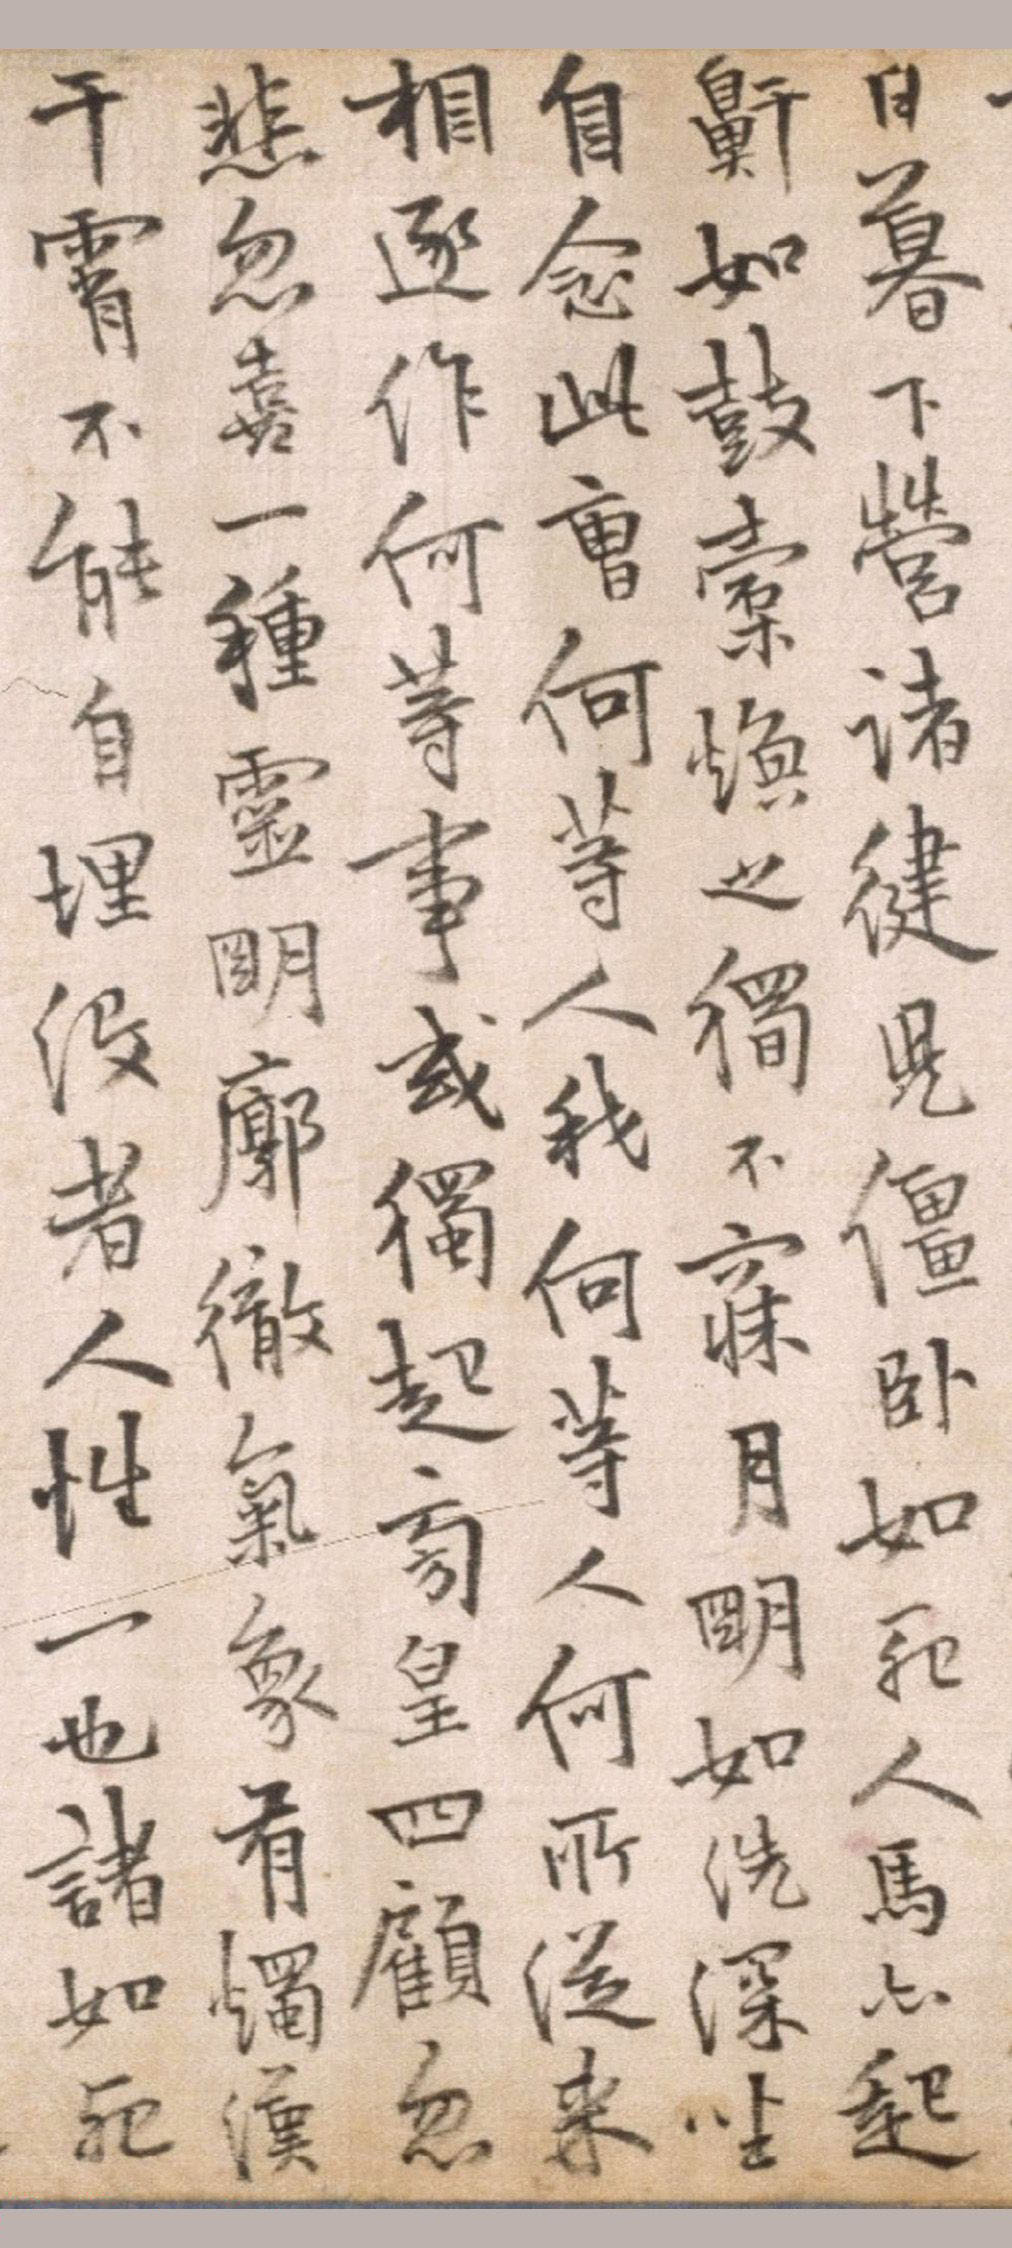 日暮下營諸健兒僵臥如死人馬亦起
鼾如鼓橐煥之獨不寐月明如洗深坐
自念此曹何等人我何等人何所從来
相逐作何等事或獨起旁皇四顧忽
悲忽喜一種靈明廓徹氣象有燭漢
干霄不能自埋没者人性一也諸如死